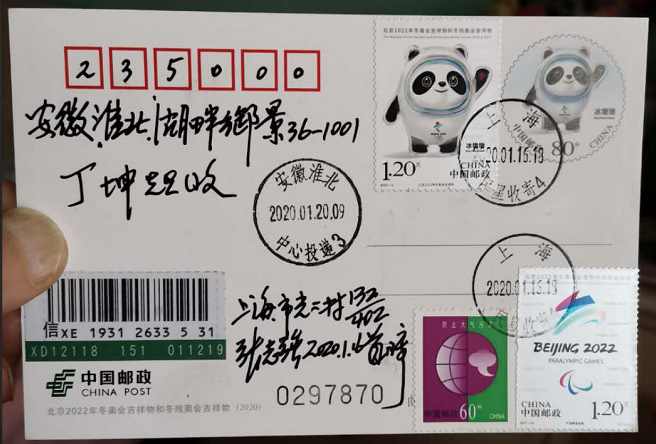 235000
安徽淮北湖畔御景36-1001
丁坤 收
北京2022年冬奥会吉祥物和冬残奥会吉祥物
冰墩墩
1.20元
CHINA
中国邮政
冰墩墩
中国邮政
80分
CHINA
上海
2020.01.15.18
收寄4
安徽淮北
2020.01.20.09
中心投递3
上海
2020.01.15.18
信XE 1931 2633 5 31
XD12118 151 011219
中国邮政
CHINA POST
北京2022年冬奥会吉祥物和冬残奥会吉祥物 (2020)
上海市 二村132/402
2020.1.
0297870
防止大气污染
中国邮政
60分
CHINA
BEIJING 2022
PARALYMPIC GAMES
CHINA
中国邮政
1.20元